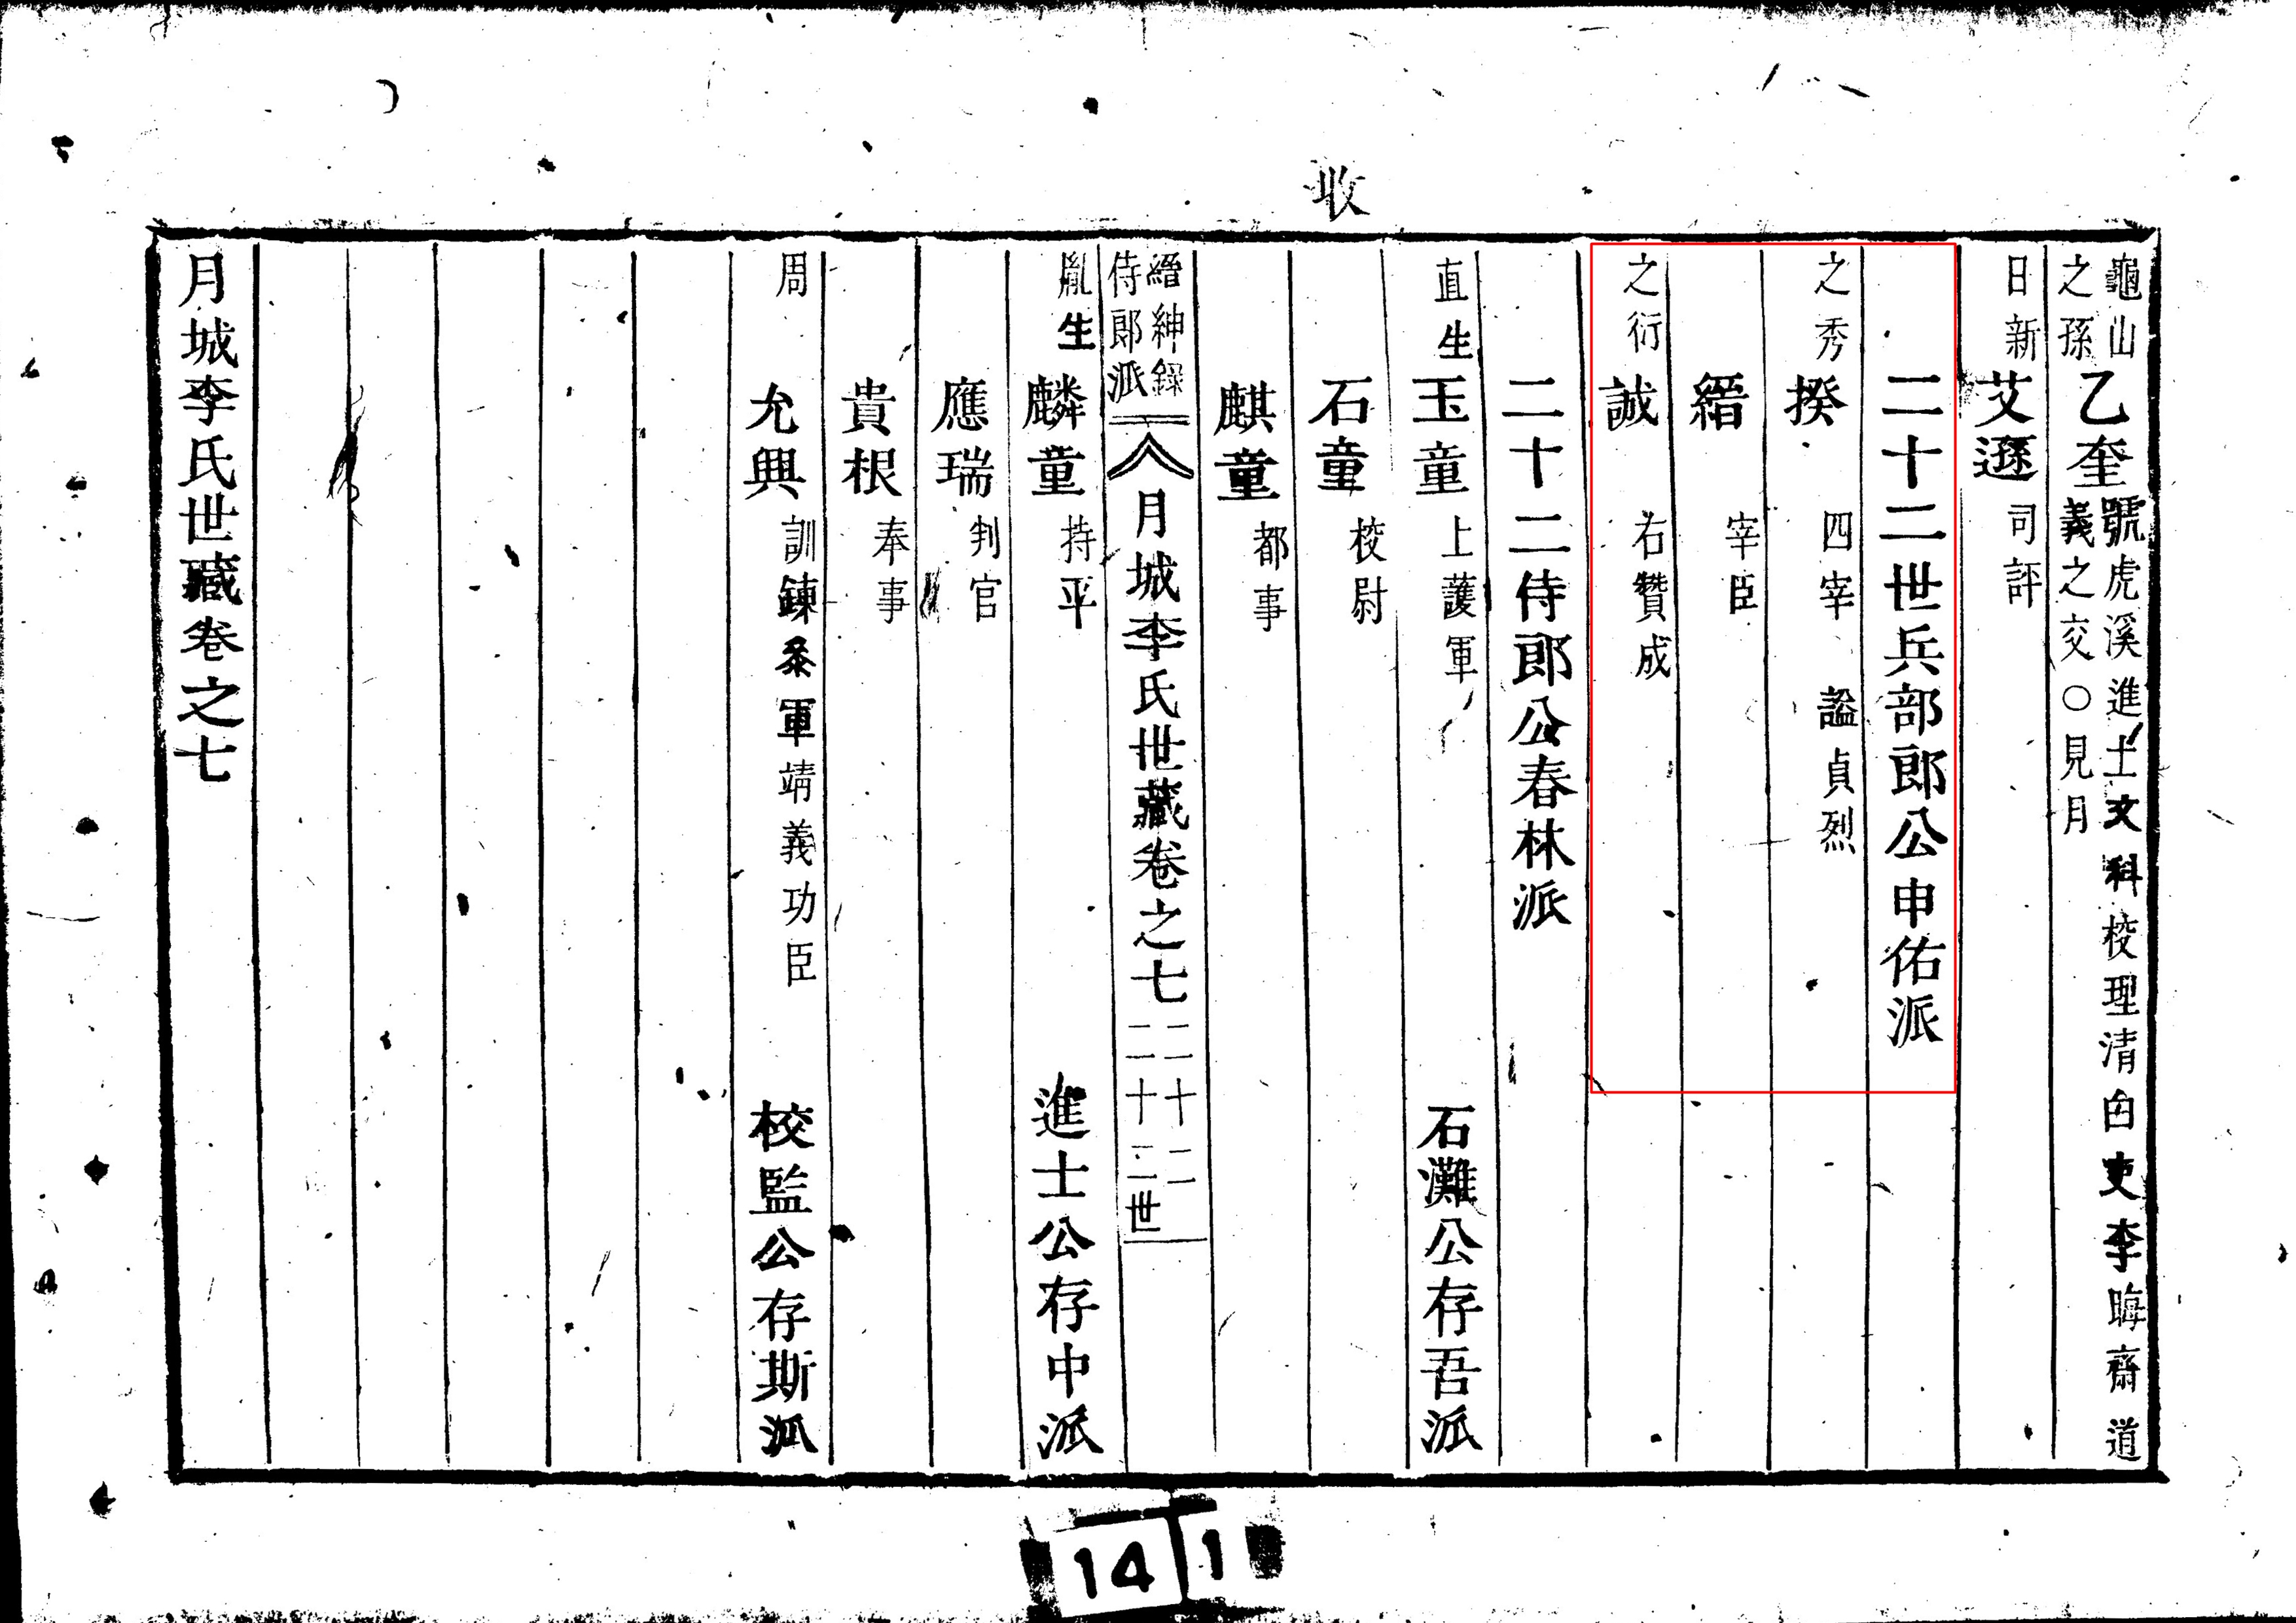 收
龜山
之孫
乙奎
號虎溪進士文科校理清白吏李晦齋道
義之交○見月
日新
艾遜
司評
二十二世兵部郎公申佑派
之秀
揆
四宰 謚貞烈
縉
宰臣
之衍
誠
右贊成
二十二侍郎公春林派
直生
玉童
上護軍
石灘公存吾派
石童
校尉
麒童
都事
縉紳錄
侍郎派
月城李氏世藏卷之七
二十二
二十二世
胤生
麟童
持平
進士公存中派
應瑞
判官
貴根
奉事
周
允興
訓鍊叅軍靖義功臣
校監公存斯派
月城李氏世藏卷之七
14
1